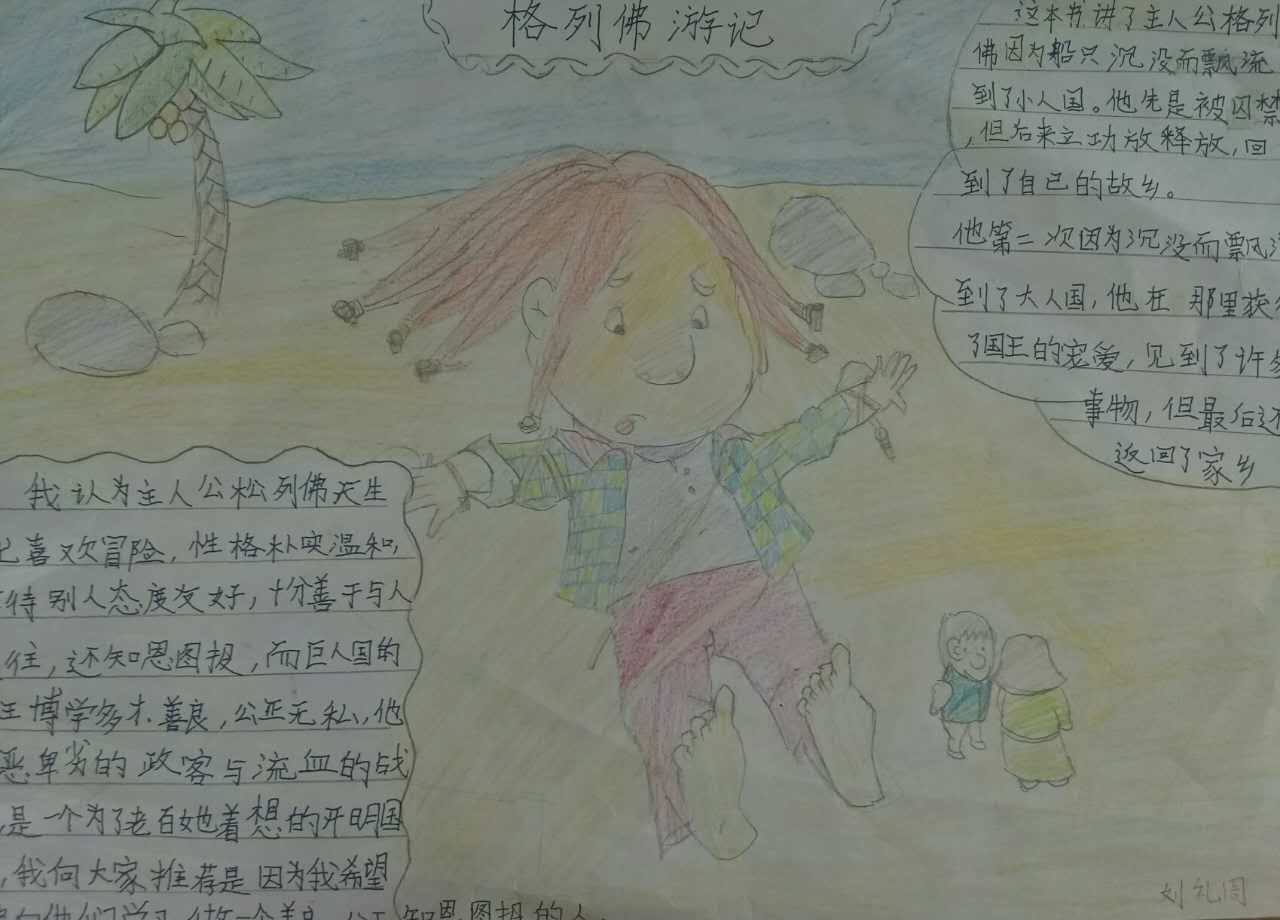 格列佛游记
这本书讲了主人公格列
佛因为船只沉没而飘流
到了小人国。他先是被囚禁
,但后来立功放释放,回
到了自己的故乡。
他第二次因为沉没而飘
到了大人国,他在那里获
了国王的宠爱,见到了许
事物,但最后还
返回了家乡
我认为主人公松列佛天生
喜欢冒险,性格朴实温和,
特别人态度友好,十分善于与人
往,还知恩图报,而巨人国的
王博学多才善良,公正无私,他
恶卑劣的政客与流血的战
是一个为了老百她着想的开明国
,我向大家推荐是因为我希望
他们学习做一个善良公正知恩图报的人。
刘礼周